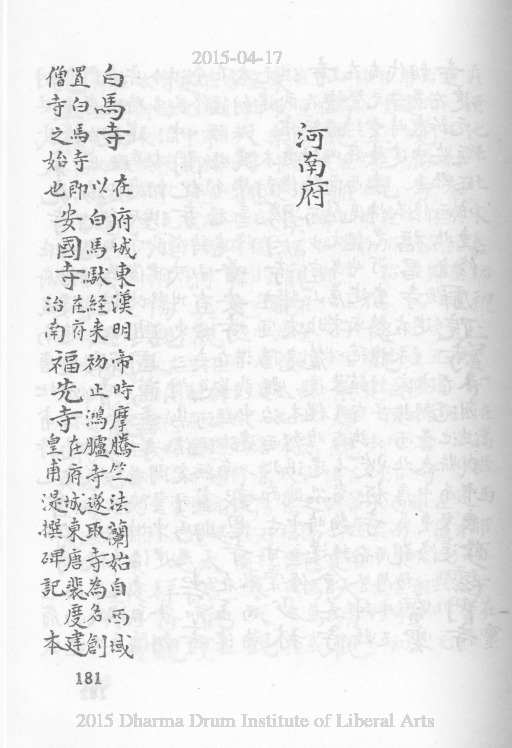 2015-04-17
河南府
白馬寺在府城東漢明帝時摩騰竺法蘭始自西域
以白馬馱經来初止鴻臚寺遂取寺為名創
置白馬寺即
僧寺之始也
安國寺在府
治南
福先寺在府城東唐裴度建
皇甫湜撰碑記本
181
2015 Dharma Drum Institute of Liberal Arts